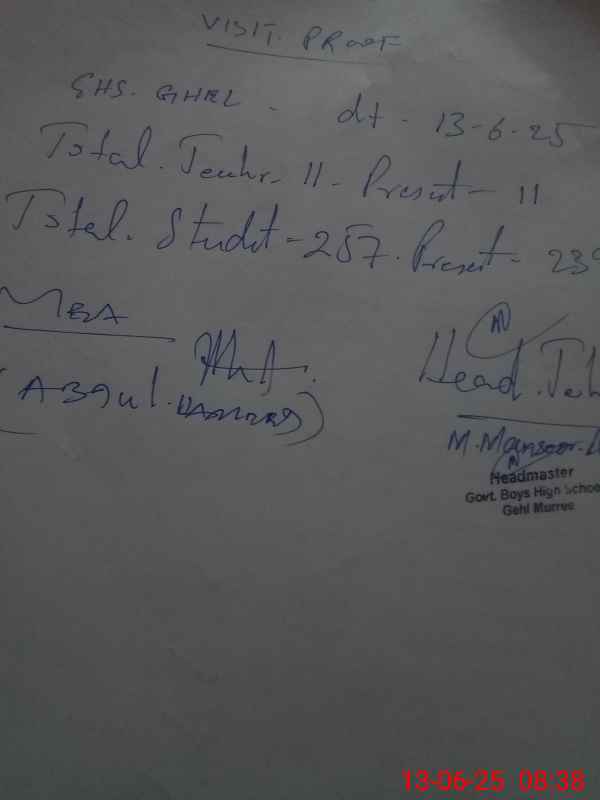 VISIT. PROOF
GHS. GHEL - dt - 13-6-25
Total. Teachr - 11 - Present - 11
Total. Studt - 257. Present - 23
MEA
(Abdul.
Head. Teh
M. Mansoor.
Headmaster
Govt. Boys High Schoo
Gehl Murree
13-06-25 08:38